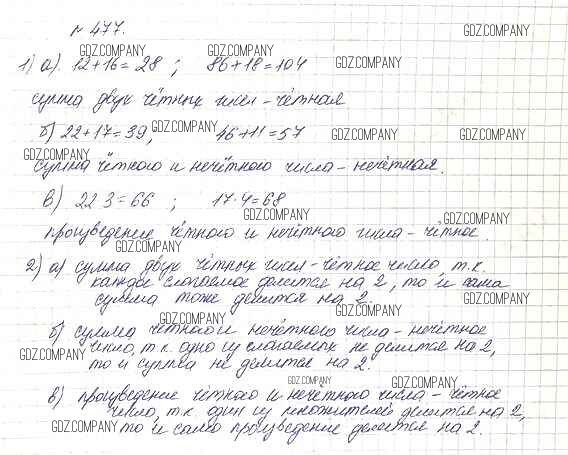 № 477.
GDZ.COMPANY
GDZ.COMPANY GDZ.COMPANY
1) а). 12+16=28 ; 86+18=104 GDZ.COMPANY
сумма двух чётных чисел - чётная
б) 22+17=39, GDZ.COMPANY 46+11=57 GDZ.COMPANY GDZ.COMPANY
GDZ.COMPANY
сумма чётного и нечётного числа - нечётная.
в) 22·3=66 ; 17·4=68
GDZ.COMPANY GDZ.COMPANY
произведение чётного и нечётного числа - чётное.
GDZ.COMPANY
2) а) сумма двух чётных чисел - чётное число, т.к.
каждое слагаемое делится на 2, то и сама
GDZ.COMPANY GDZ.COMPANY
сумма тоже делится на 2.
GDZ.COMPANY
б) сумма чётного и нечётного числа - нечётное
число, т.к. одно из слагаемых не делится на 2,
GDZ.COMPANY
то и сумма не делится на 2.
GDZ.COMPANY GDZ.COMPANY
в) произведение чётного и нечётного числа - чётное
число, т.к. один из множителей делится на 2,
GDZ.COMPANY то и само произведение делится на 2.
GDZ.COMPANY